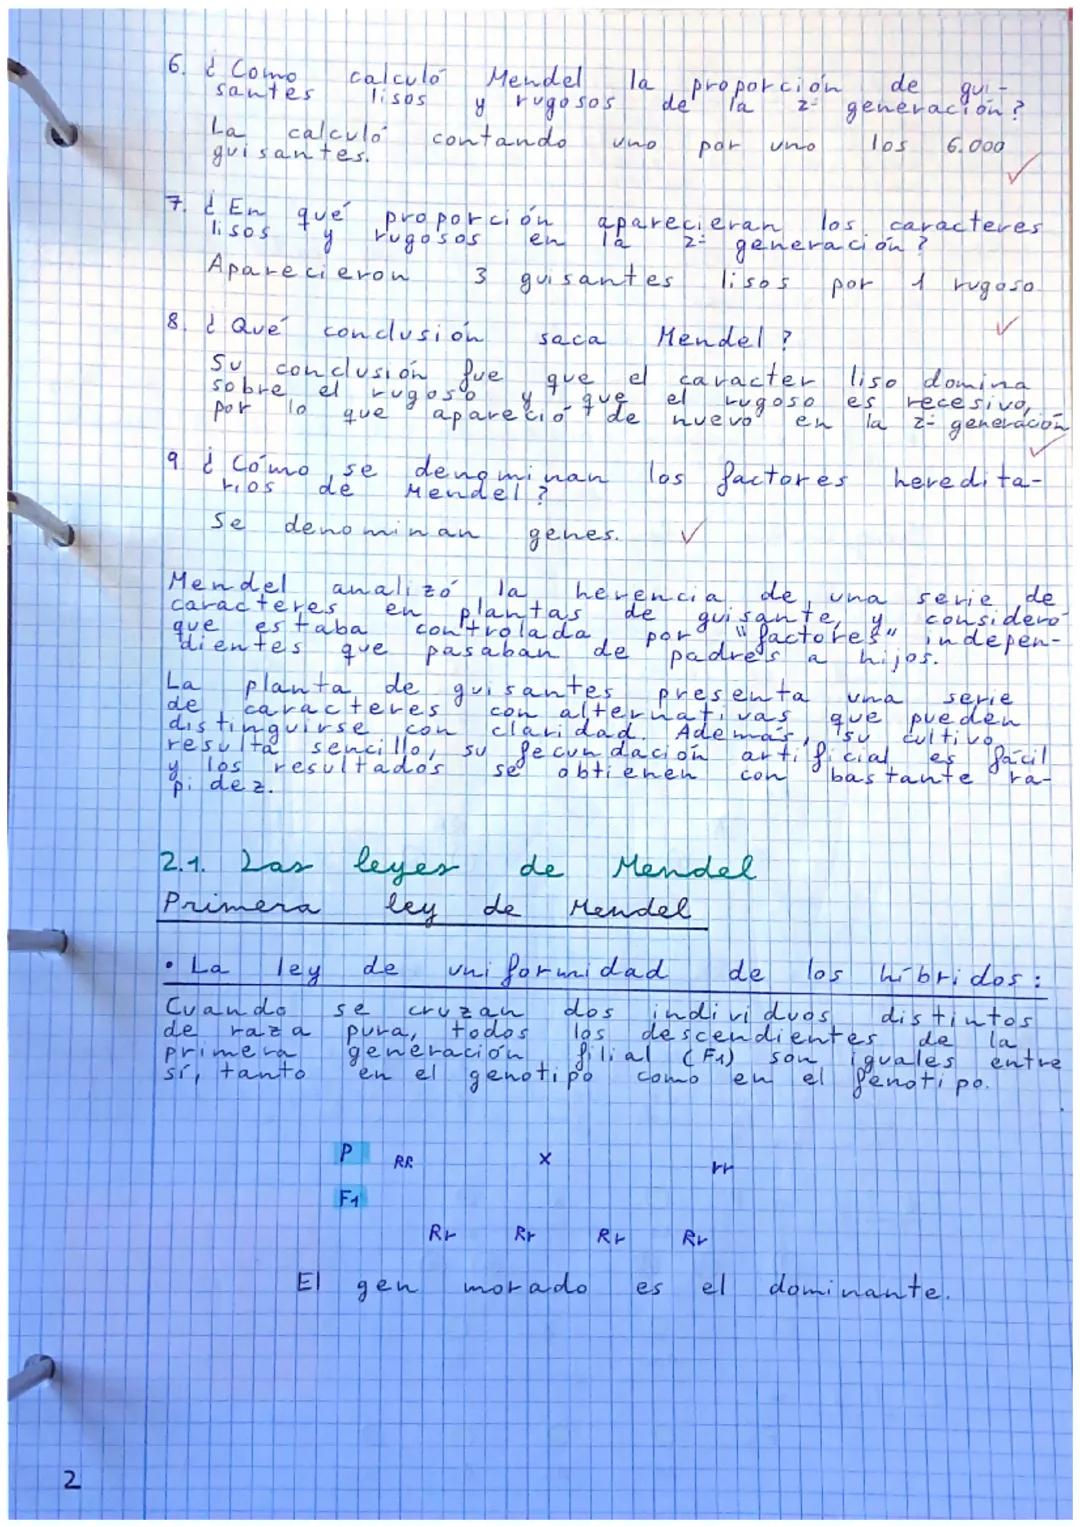 6. ¿Como calculó Mendel la proporción de gui-
santes lisos y rugosos de la 2ª generación?
La calculó contando uno por uno los 6.000
guisantes.
7. ¿En qué proporción aparecieran los caracteres
lisos y rugosos en la 2ª generación?
Aparecieron 3 guisantes lisos por 1 rugoso
8. ¿Qué conclusión saca Mendel?
Su conclusión fue que el caracter liso domina
sobre el rugoso y que el rugoso es recesivo,
por lo que apareció de nuevo en la 2ª generación
9. ¿Cómo se denominan los factores heredita-
rios de Mendel?
Se denominan genes.
Mendel analizó la herencia de una serie de
caracteres en plantas de guisante, y consideró
que estaba controlada por "factores" indepen-
dientes que pasaban de padres a hijos.
La planta de guisantes presenta una serie
de caracteres con alternativas que pueden
distinguirse con claridad. Además, su cultivo
resulta sencillo, su fecundación artificial es fácil
y los resultados se obtienen con bastante ra-
pidez.
2.1. Las leyes de Mendel
Primera ley de Mendel
• La ley de uniformidad de los híbridos:
Cuando se cruzan dos individuos distintos
de raza pura, todos los descendientes de la
primera generación filial (F1) son iguales entre
sí, tanto en el genotipo como en el fenotipo.
P RR x rr
F1
Rr Rr Rr Rr
El gen morado es el dominante.
2